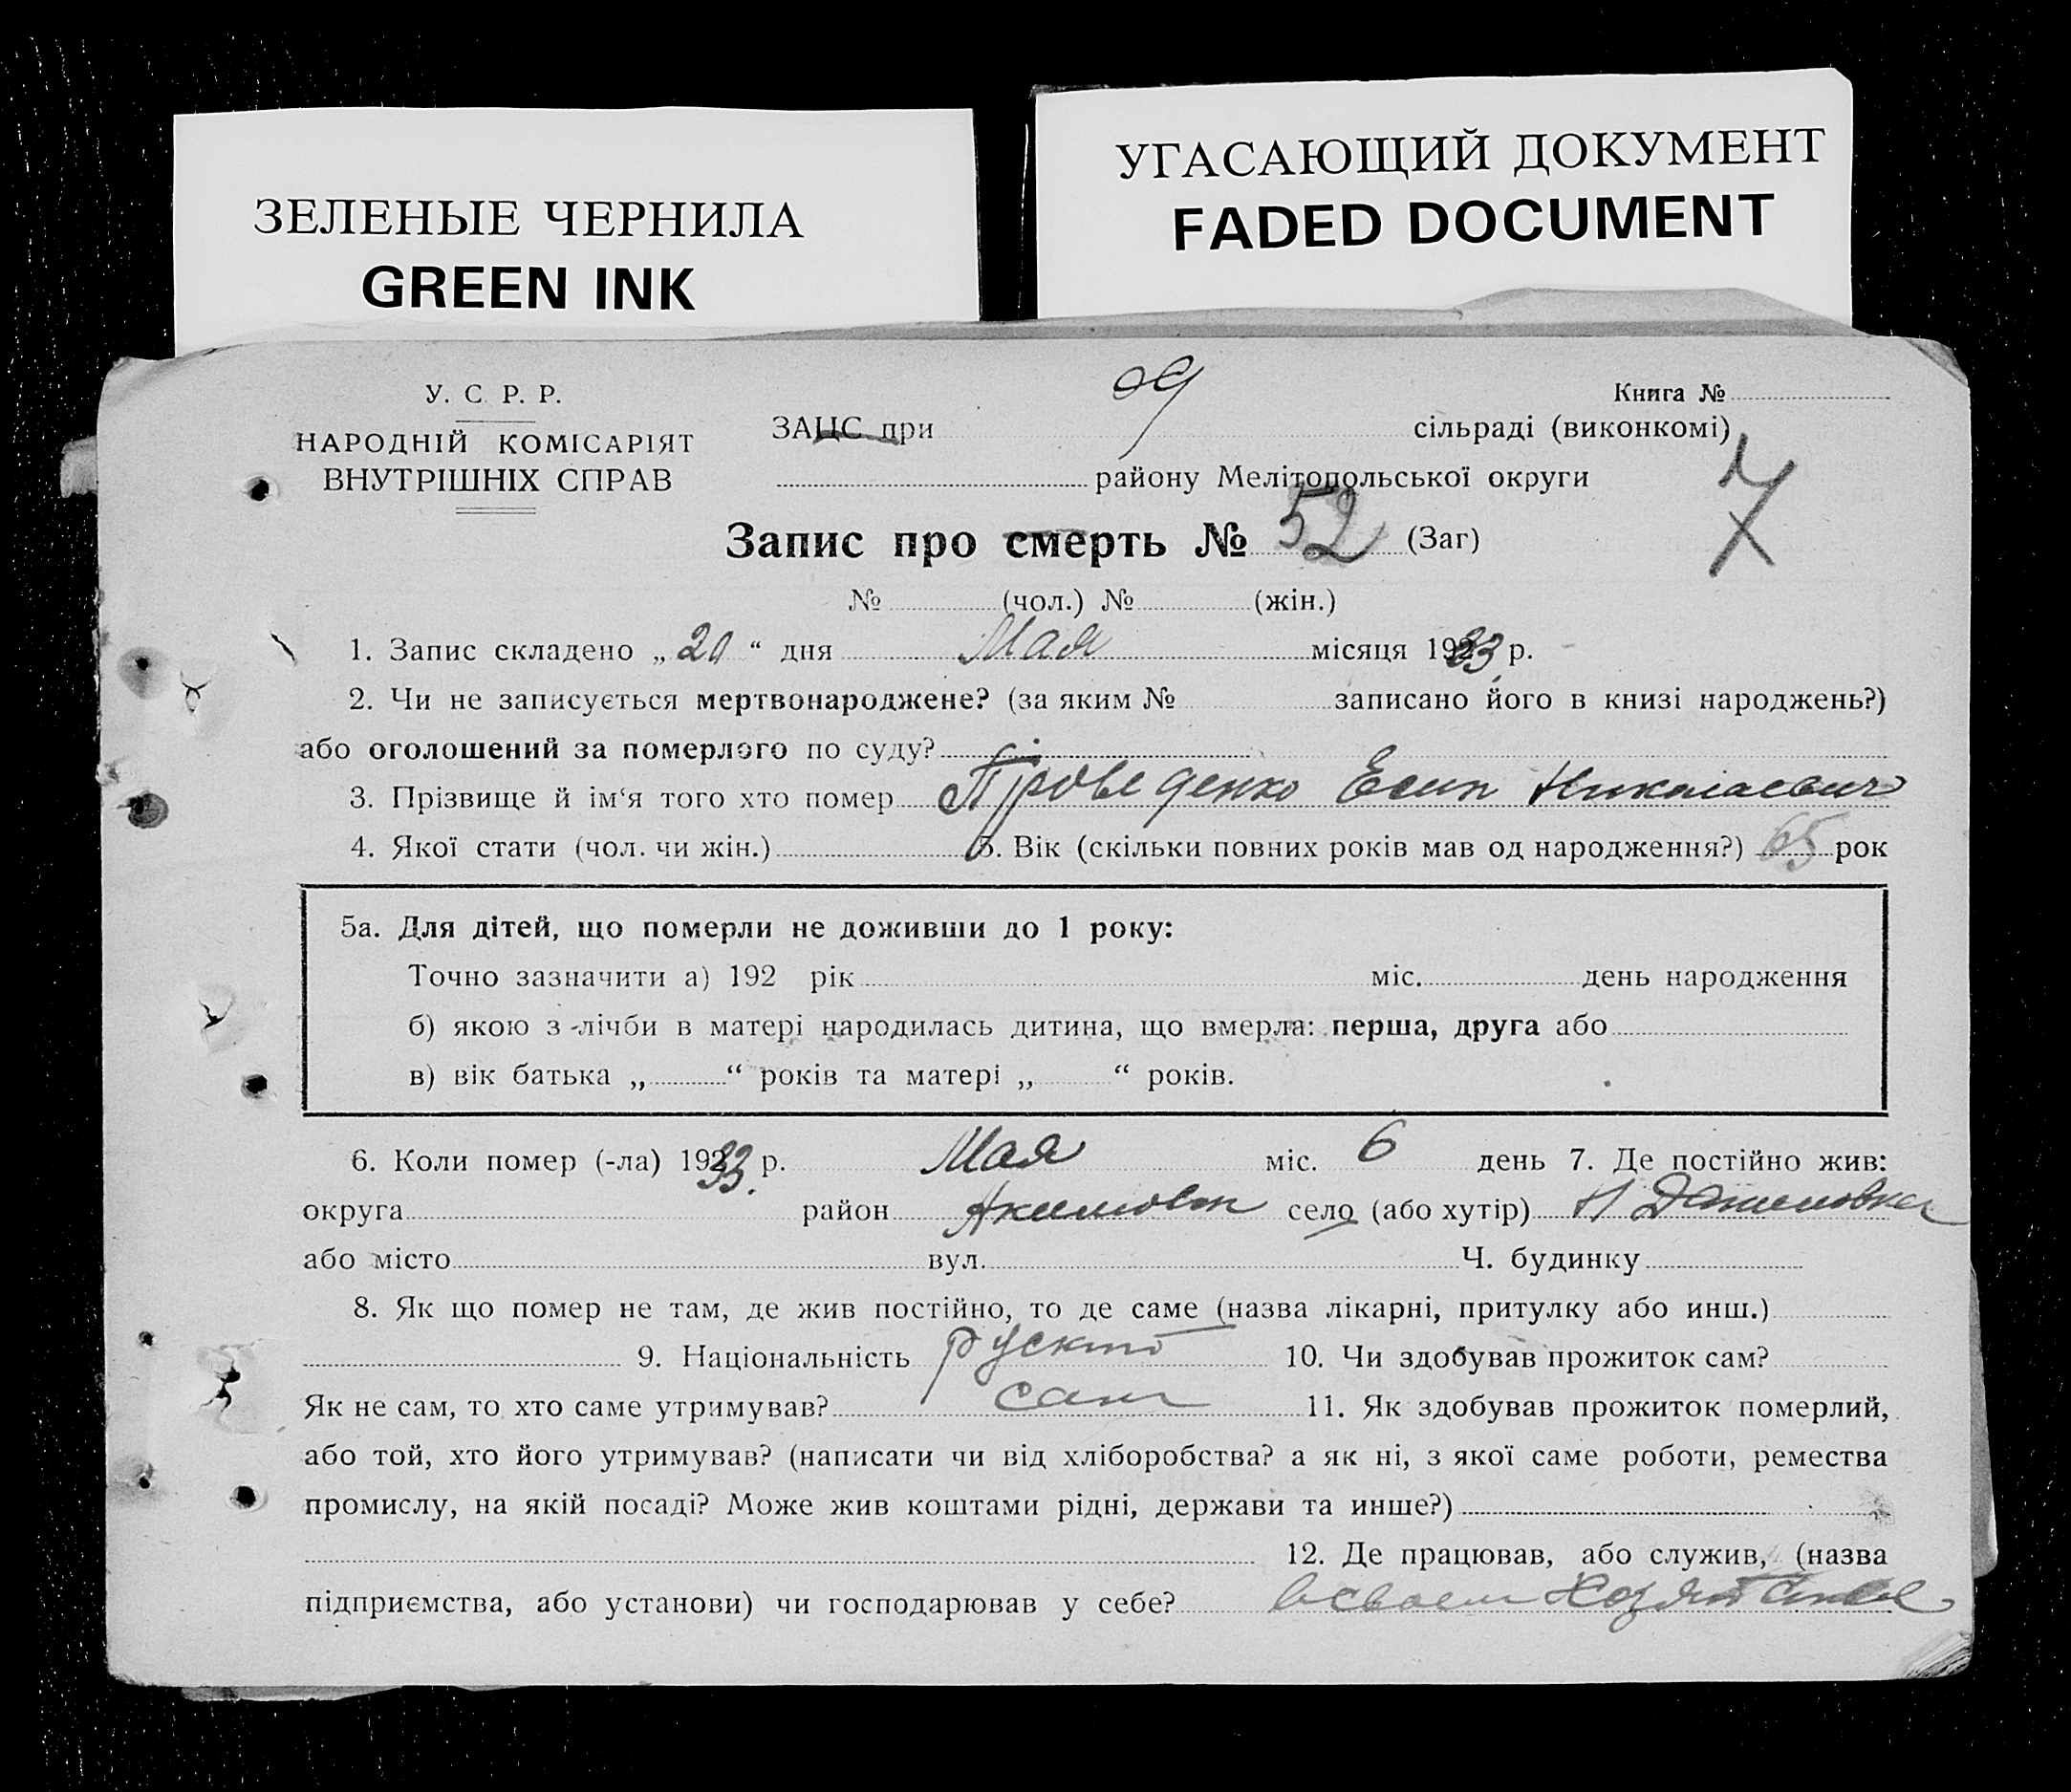 ЗЕЛЕНЫЕ ЧЕРНИЛА
GREEN INK
УГАСАЮЩИЙ ДОКУМЕНТ
FADED DOCUMENT
У. С. Р. Р.
НАРОДНІЙ КОМІСАРІЯТ
ВНУТРІШНІХ СПРАВ
Книга №
ЗАЦС при сільраді (виконкомі)
району Мелітопольської округи
Запис про смерть № 52 (Заг)
№ (чол.) № (жін.)
1. Запис складено „20“ дня Мая місяця 1933 р.
2. Чи не записується мертвонароджене? (за яким № записано його в книзі народжень?)
або оголошений за померлого по суду?
3. Прізвище й ім‘я того хто помер Николаевич
4. Якої стати (чол. чи жін.) 5. Вік (скільки повних років мав од народження?) 65 рок
5а. Для дітей, що померли не доживши до 1 року:
Точно зазначити а) 192 рік міс. день народження
б) якою з лічби в матері народилась дитина, що вмерла: перша, друга або
в) вік батька „ “ років та матері „ “ років.
6. Коли помер (-ла) 1933 р. Мая міс. 6 день 7. Де постійно жив:
округа район Акимовск село (або хутір) Н Даниловка
або місто вул. Ч. будинку
8. Як що помер не там, де жив постійно, то де саме (назва лікарні, притулку або инш.)
9. Національність 10. Чи здобував прожиток сам?
Як не сам, то хто саме утримував? сам 11. Як здобував прожиток померлий,
або той, хто його утримував? (написати чи від хліборобства? а як ні, з якої саме роботи, ремества
промислу, на якій посаді? Може жив коштами рідні, держави та инше?)
12. Де працював, або служив, (назва
підприємства, або установи) чи господарював у себе? в своем